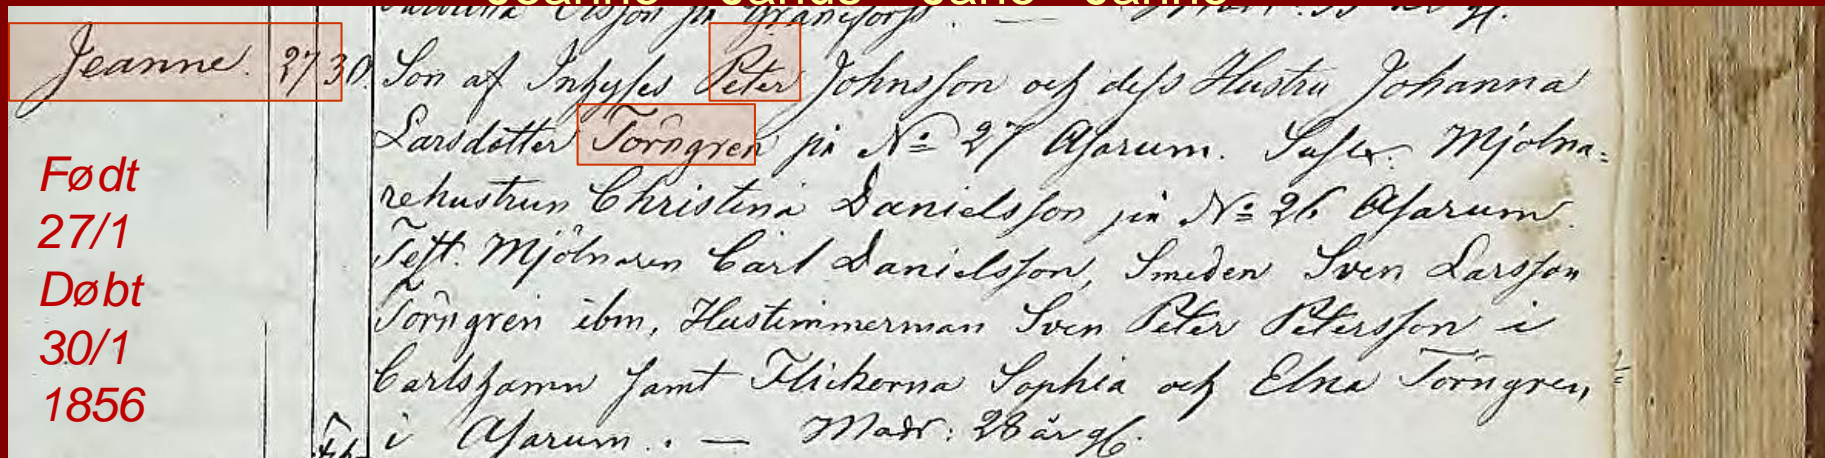 Jeanne - Janus - Jane - Janne
Jeanne. 27 30. Son af Inhyses Peter Johnsson och dess Hustru Johanna
Larsdotter Törngren på No 27 Asarum. Susc. Mjölna-
rehustrun Christina Danielsson på No 26 Asarum.
Test. Mjölnaren Carl Danielsson, Smeden Sven Larsson
Törngren ibm, Hustimmerman Sven Peter Petersson i
Carlshamn samt Flickorna Sophia och Elna Törngren,
i Asarum. — Modr: 28 år gl.
Født
27/1
Døbt
30/1
1856